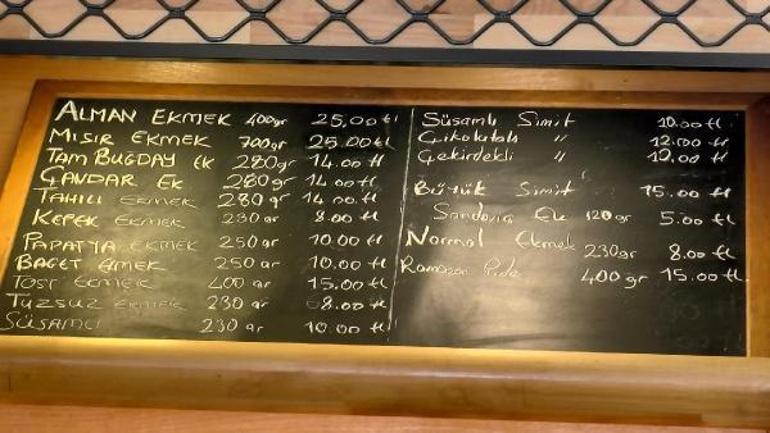 ALMAN EKMEK 400gr 25,00tl
MISIR EKMEK 700gr 25.00tl
TAM BUGDAY EK 280gr 14.00 tl
ÇAVDAR EK 280gr 14.00 tl
TAHILI EKMEK 280gr 14.00.tl
KEPEK EKMEK 230gr 8.00 tl
PAPATYA EKMEK 250gr 10.00 tl
BAGET EMEK 250 gr 10.00 tl
TOST EKMEK 400 gr 15.00 tl
TUZSUZ EKMEK 230 gr 8.00 tl
SÜSAMLI 230 gr 10.00 tl
Süsamlı Simit 10.00 tl
Çikolatalı " 12.00 tl
Çekirdekli " 12.00 tl
Büyük Simit 15.00 tl
Sandoviç Ek 120gr 5.00 tl
Normal Ekmek 230gr 8.00 tl
Ramazan Pide 400gr 15.00 tl